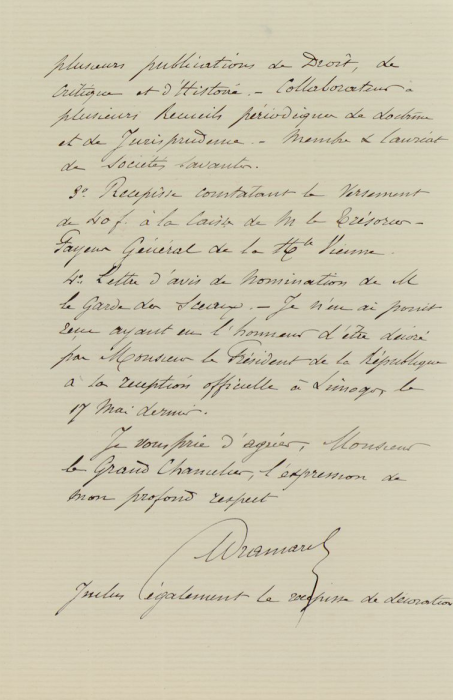 plusieurs publications de Droit, de
Critique et d'Histoire. - Collaborateur à
plusieurs Recueils périodiques de doctrine
et de Jurisprudence. - Membre & lauréat
de Sociétés savantes.
3° Recepisse constatant le Versement
de 40 f. à la Caisse de M le Trésorier-
Payeur Général de la Hte Vienne.
4° Lettre d'avis de nomination de M
le Garde des Sceaux. - Je n'en ai point
reçu ayant eu l'honneur d'être décoré
par Monsieur le Président de la République
à la réception officielle à Limoges, le
17 Mai dernier.
Je vous prie d'agréer, Monsieur
le Grand Chancelier, l'expression de
mon profond respect
Dramard
Inclus également le recepisse de décoration